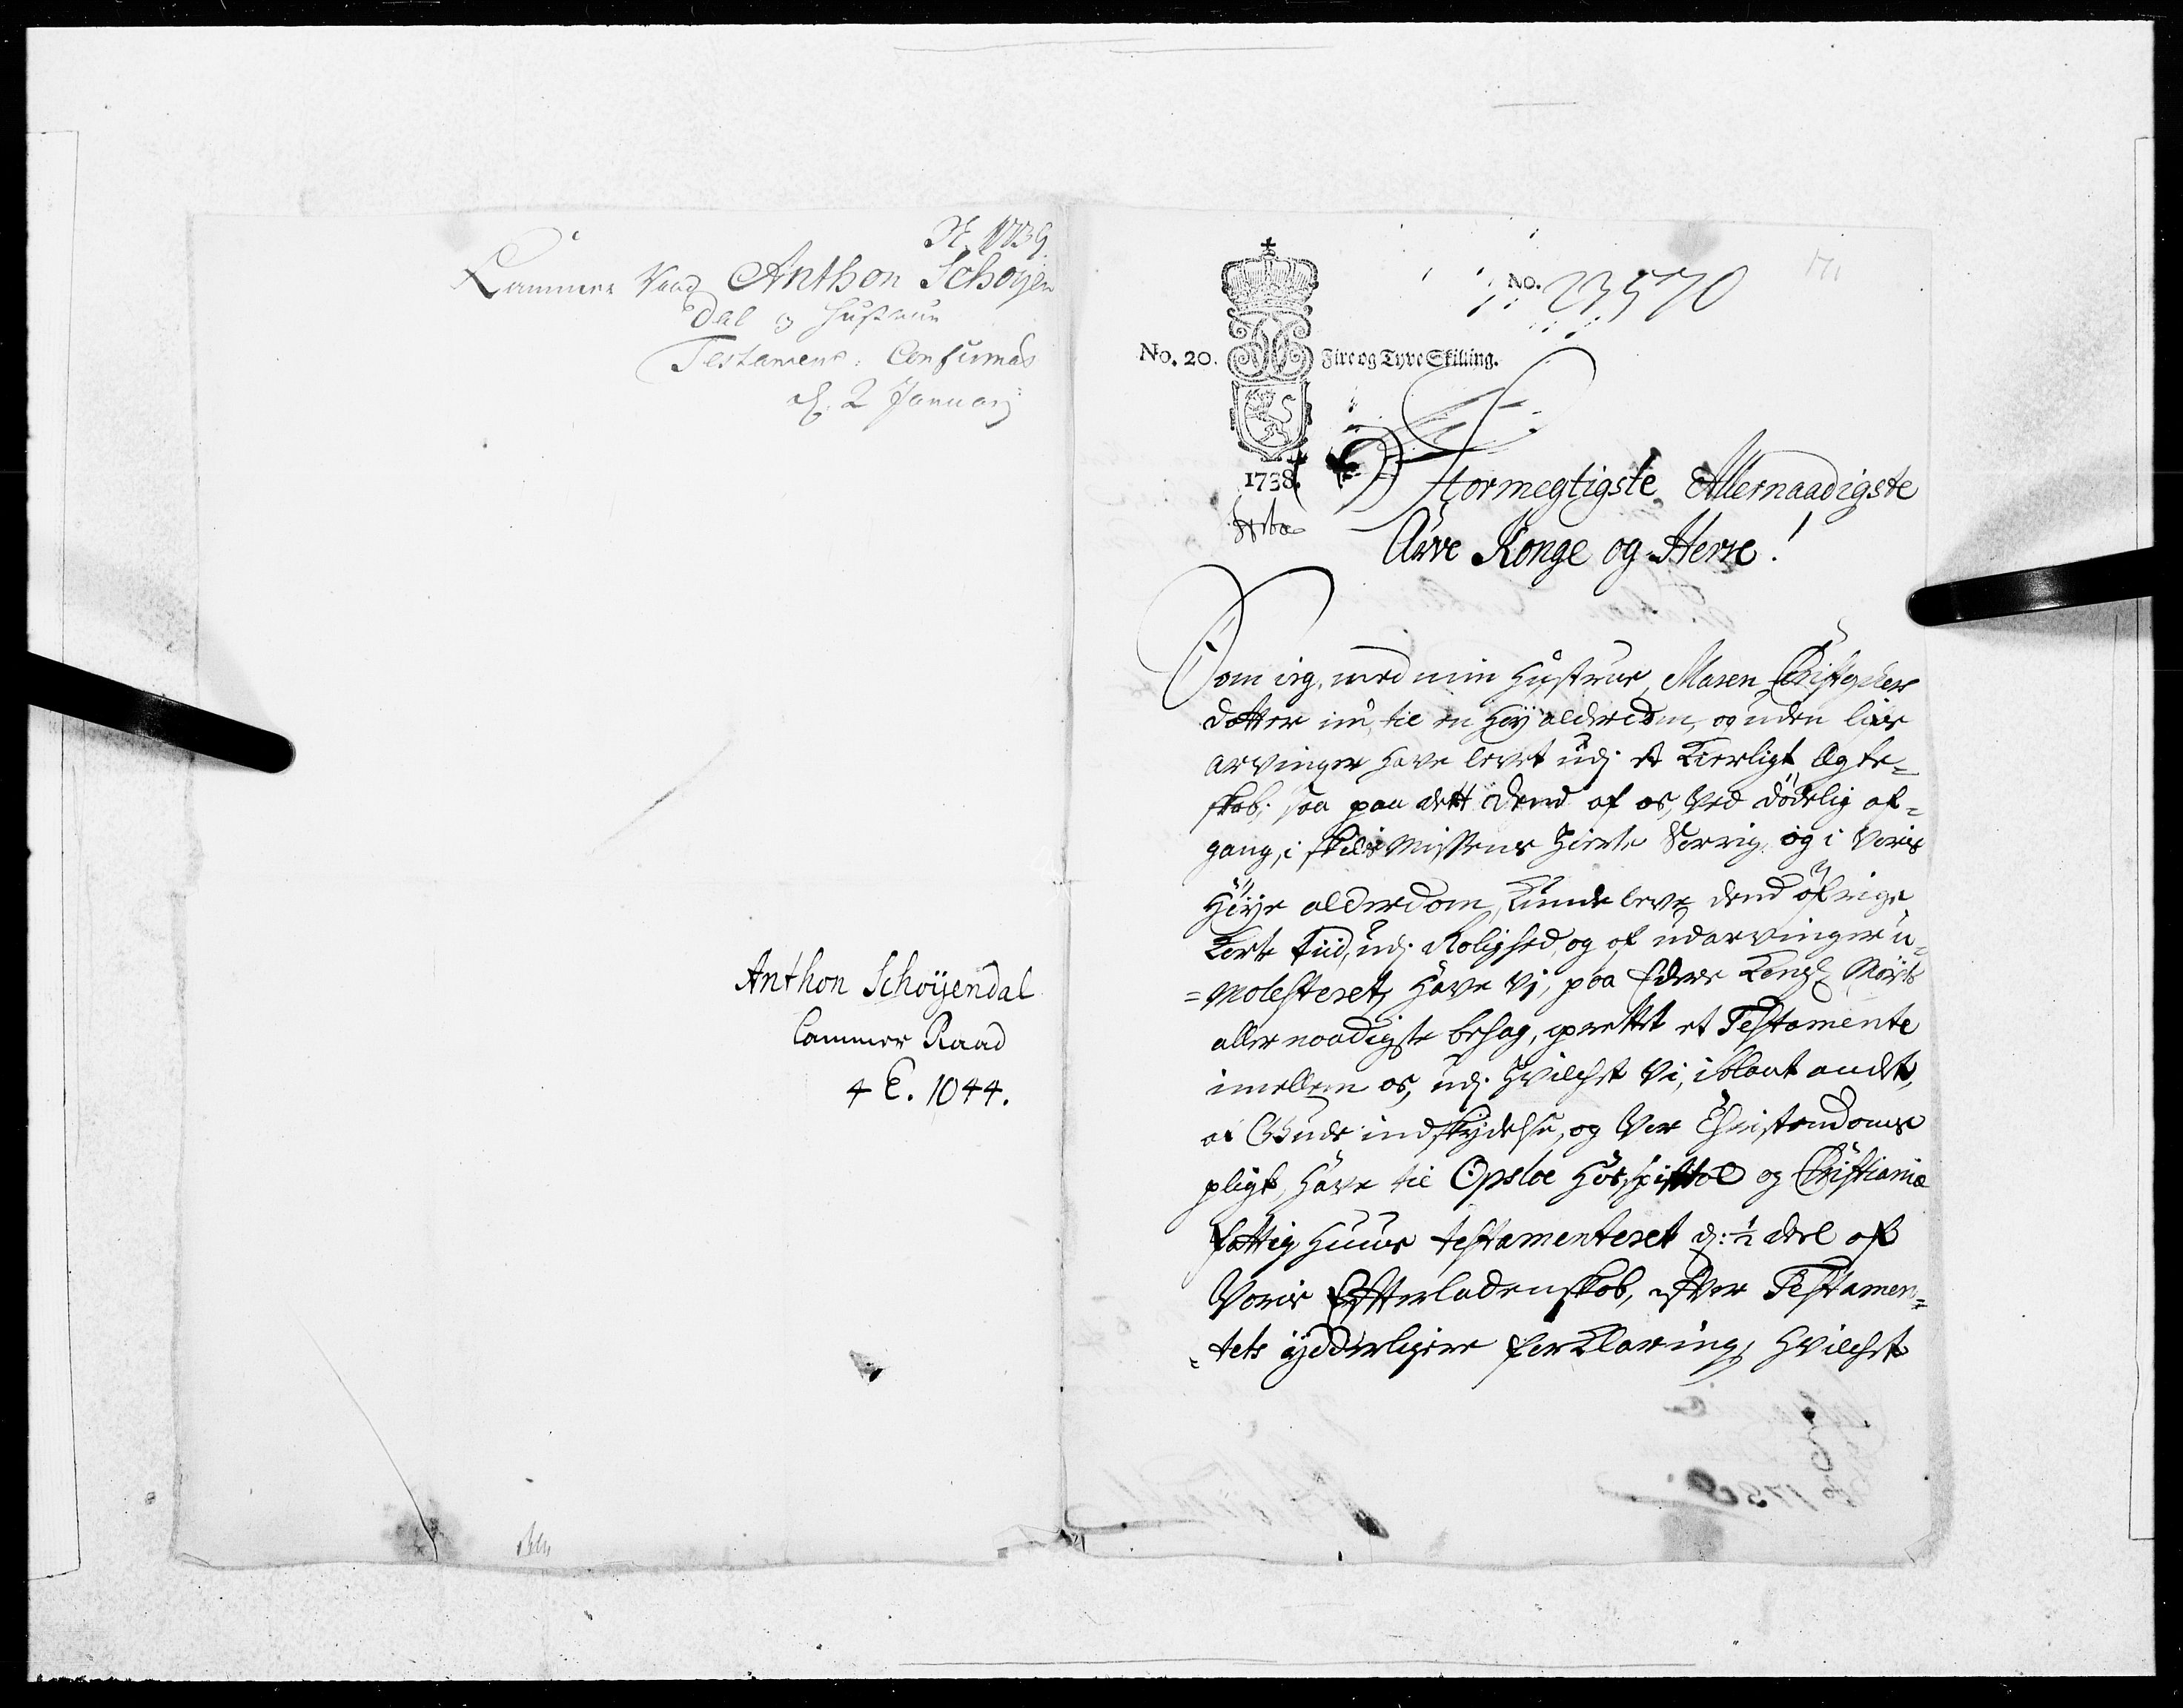 1739
Cammer Raad Anthon Schøyen
dal og Hustrue
Testament: Confirmas
d. 2 Januarj
Anthon Schøyendal
Cammer Raad
4 E. 1044.
No. 23570
No. 20. Fire og Tyve Skilling.
1738.
Stormegtigste Allernaadigste
Arve Konge og Herre!
Som ieg, med min Hustrue, Maren Christopher
datter nu, til en høy alderdom, og uden lifs
arvinger have levet udj et Kierligt Ægte=
skab; saa paa dett dend af os, ved dødelig af=
gang, i skilsmissens hierte Sorrig, og i voris
høye alderdom, kunde leve dend øfrige
korte tiid, udj Rolighed, og af udarvinger u=
=molesteret, have vj, paa Eders Kongl: Mayts
allernaadigste behag, oprettet et Testamente
imellem os, udj hvilchet vi, iblant andet,
af Guds indskydelse, og vor Christendoms
pligt, have til Opsloe Hosspittal og Christiania
fattig huus testamenteret d: 1/2 deel af
Voris Efterladenskab, efter Testamen=
=tets ÿdderligere forklaring, hvilchet